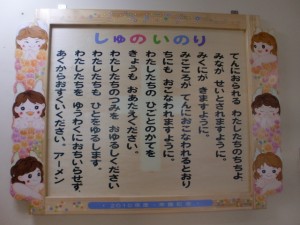 しゅのいのり
てんにおられる わたしたちのちちよ、
みなが せいとされますように。
みくにが きますように。
みこころが てんにおこなわれるとおり
ちにも おこなわれますように。
わたしたちの ひごとのかてを
きょうも おあたえください。
わたしたちのつみを おゆるしください
わたしたちも ひとをゆるします。
わたしたちを ゆうわくにおちいらせず、
あくからおすくいください。アーメン